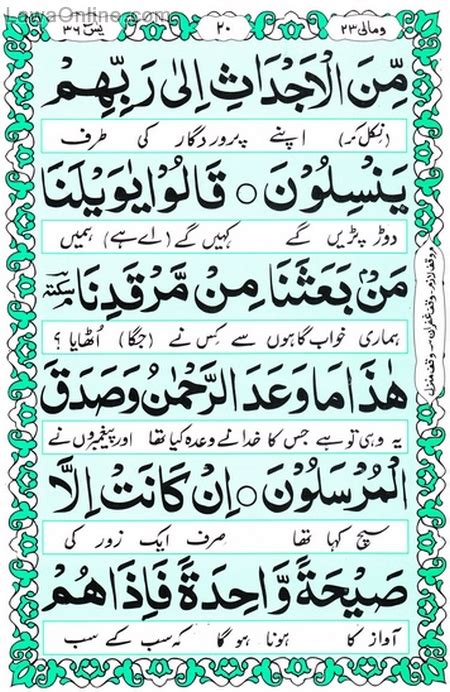 LawaOnline.com
ومالی ۲۳
۲۰
یٰسٓ ۳۶
مِّنَ الْاَجْدَاثِ اِلٰى رَبِّهِمْ
(نکل کر) اپنے پروردگار کی طرف
يَنْسِلُوْنَ ○ قَالُوْا يٰوَيْلَنَا
دوڑ پڑیں گے کہیں گے (اے ہے) ہمیں
مَنْۢ بَعَثَنَا مِنْ مَّرْقَدِنَا سكتة
ہماری خواب گاہوں سے کس نے (جگا) اُٹھایا ؟
هٰذَا مَا وَعَدَ الرَّحْمٰنُ وَصَدَقَ
یہ وہی تو ہے جس کا خدا نے وعدہ کیا تھا اور پیغمبروں نے
الْمُرْسَلُوْنَ ○ اِنْ كَانَتْ اِلَّا
سچ کہا تھا صرف ایک زور کی
صَيْحَةً وَّاحِدَةً فَاِذَا هُمْ
آواز کا ہونا ہو گا کہ سب کے سب